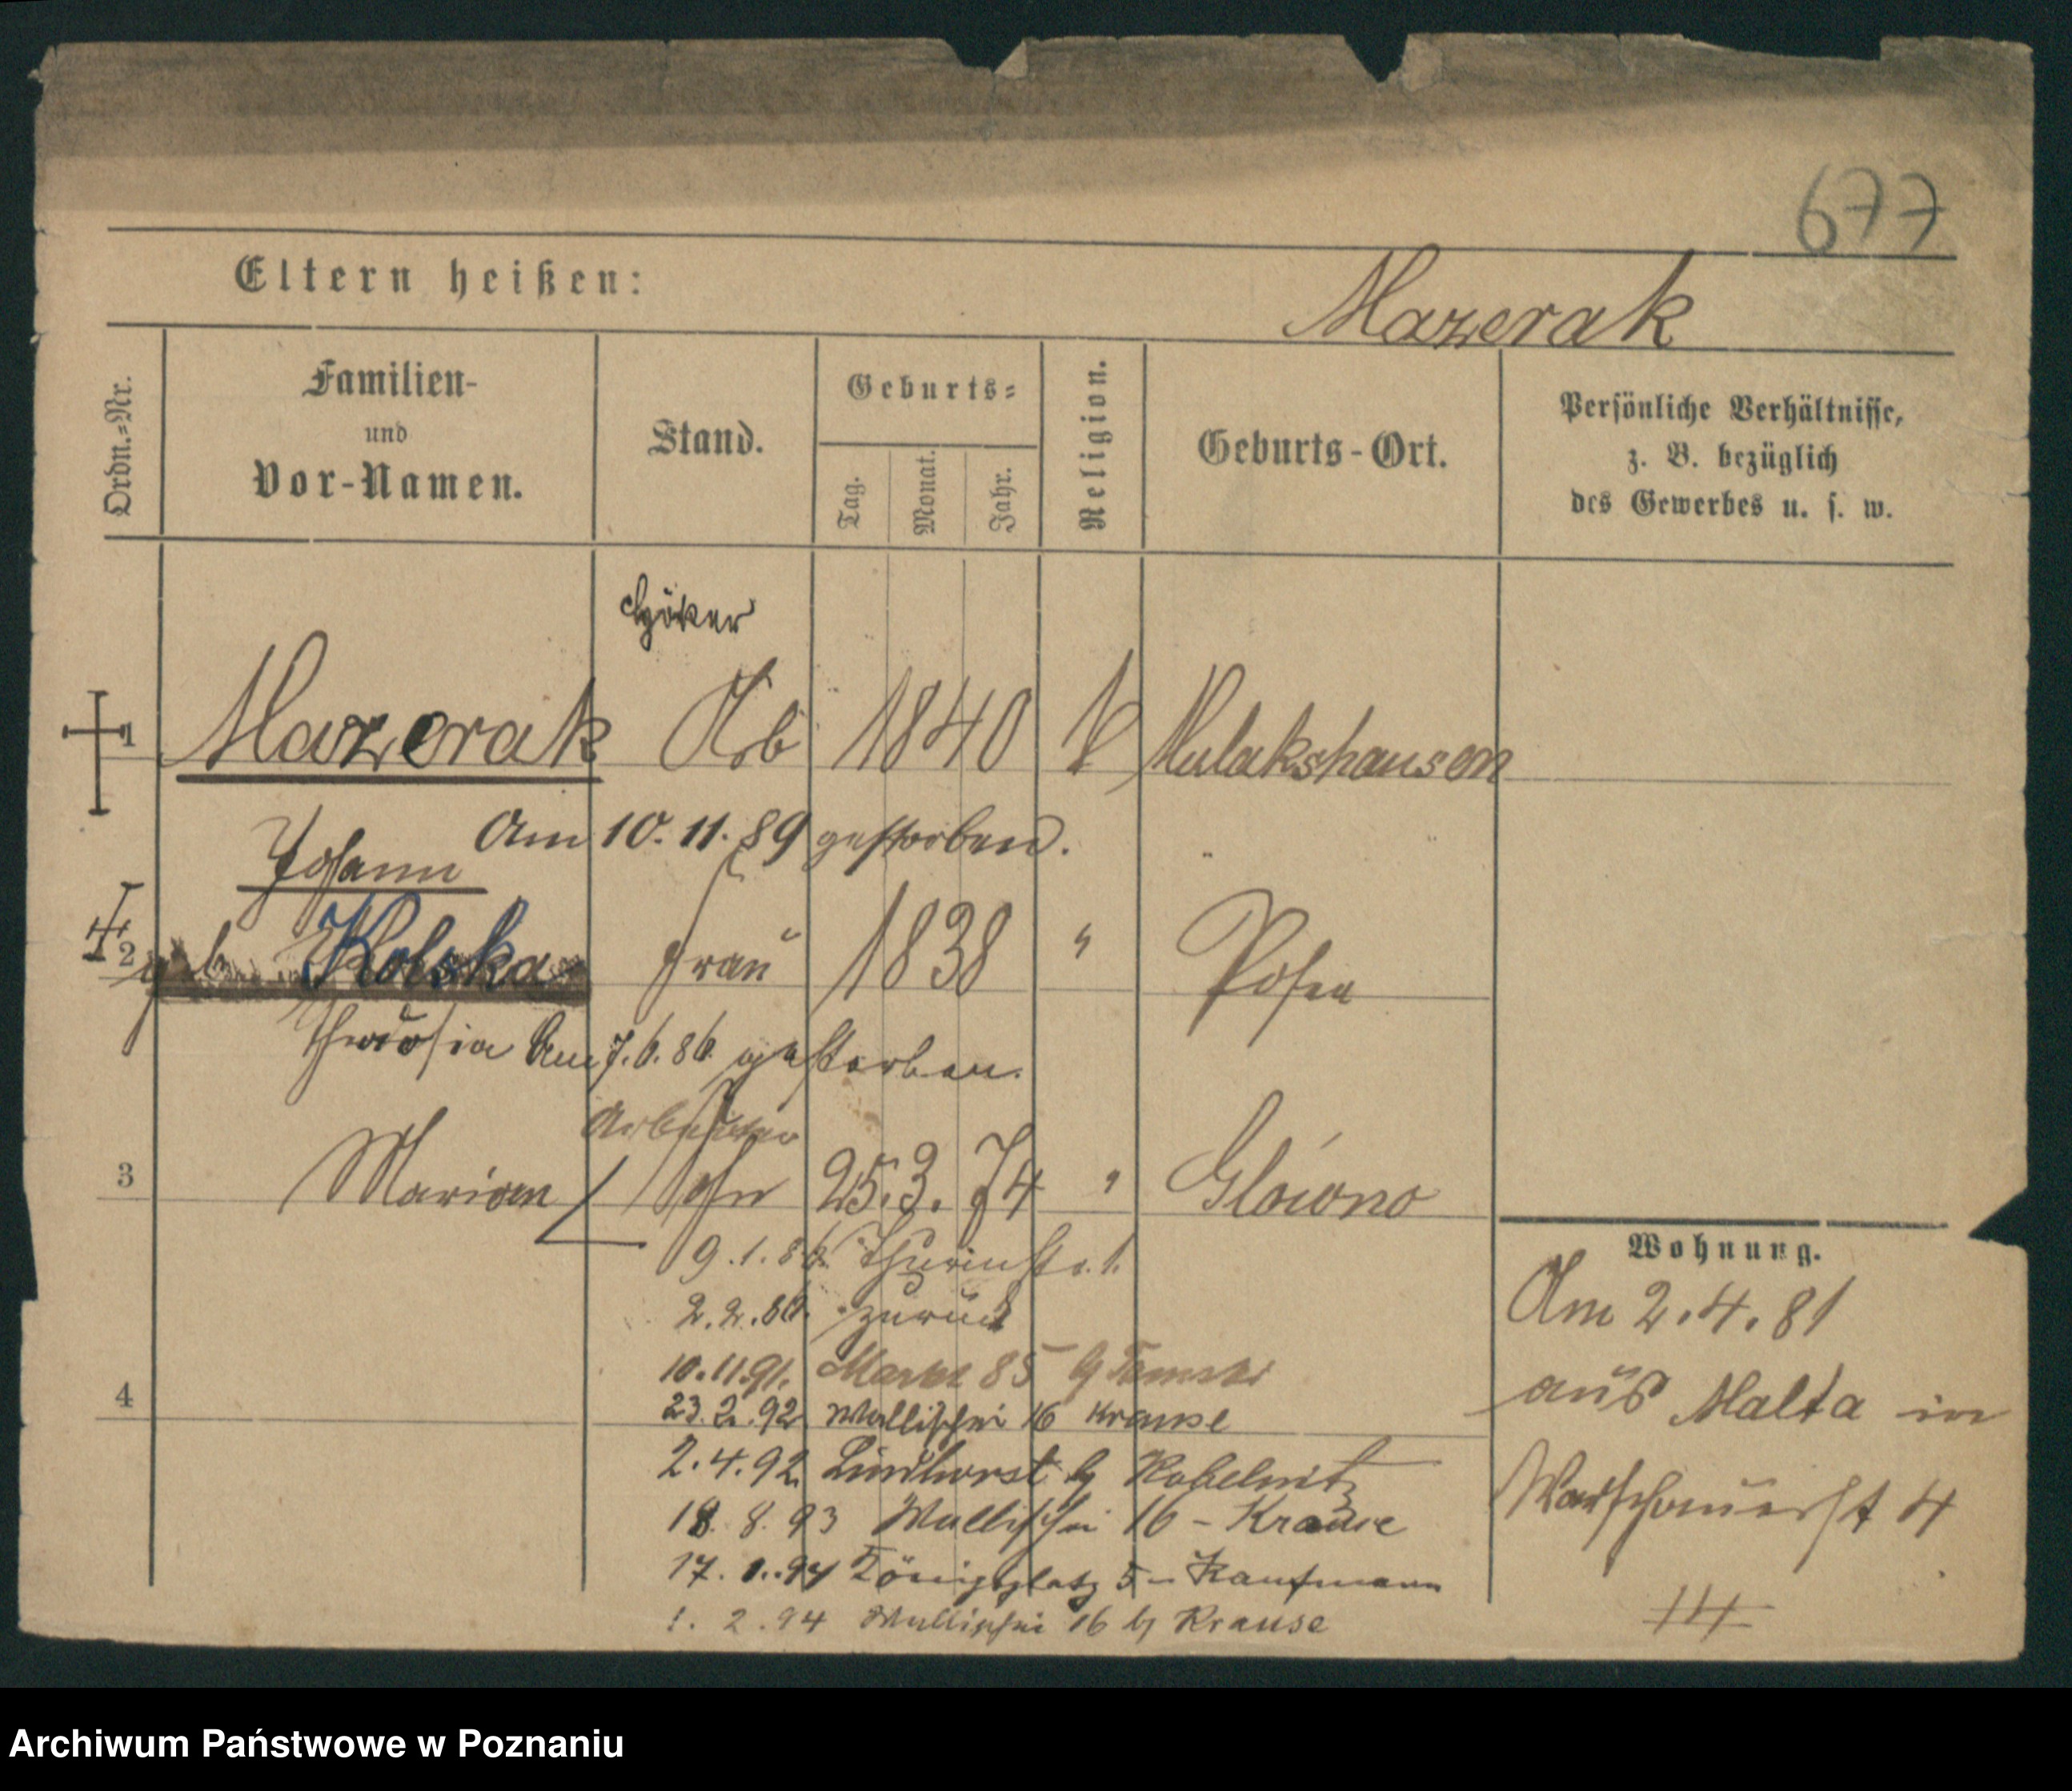 677
Eltern heißen:
Mazerak
Ordn.=Nr.
Familien-
und
Vor-Namen.
Stand.
Geburts=
Tag.
Monat.
Jahr.
Religion.
Geburts-Ort.
Persönliche Verhältnisse,
z. B. bezüglich
des Gewerbes u. s. w.
Höker
1 Mazerak Arb 1840 k Mulakshausen
Am 10. 11. 89 gestorben.
Johann
2 geb Kolska Frau 1838 " Posen
Theodosia Am 7. 6. 86. gestorben.
Arbeiter
3 Marian Sohn 25. 3. 74 "
9. 1. 86. Thurmstr. 1.
2. 2. 86. zurück
10. 11. 91. Markt 85 b/
4
23. 2. 92 Wallischei 16 Krause
2. 4. 92 Lindhorst b/ Kobelnitz
18. 8. 93 Wallischei 16 - Krause
17. 1. 94 Königsplatz 5 - Kaufmann
1. 2. 94 Wallischei 16 b/ Krause
Wohnung.
Am 2. 4. 81
aus Malta in
Warschauerst 4
Archiwum Państwowe w Poznaniu